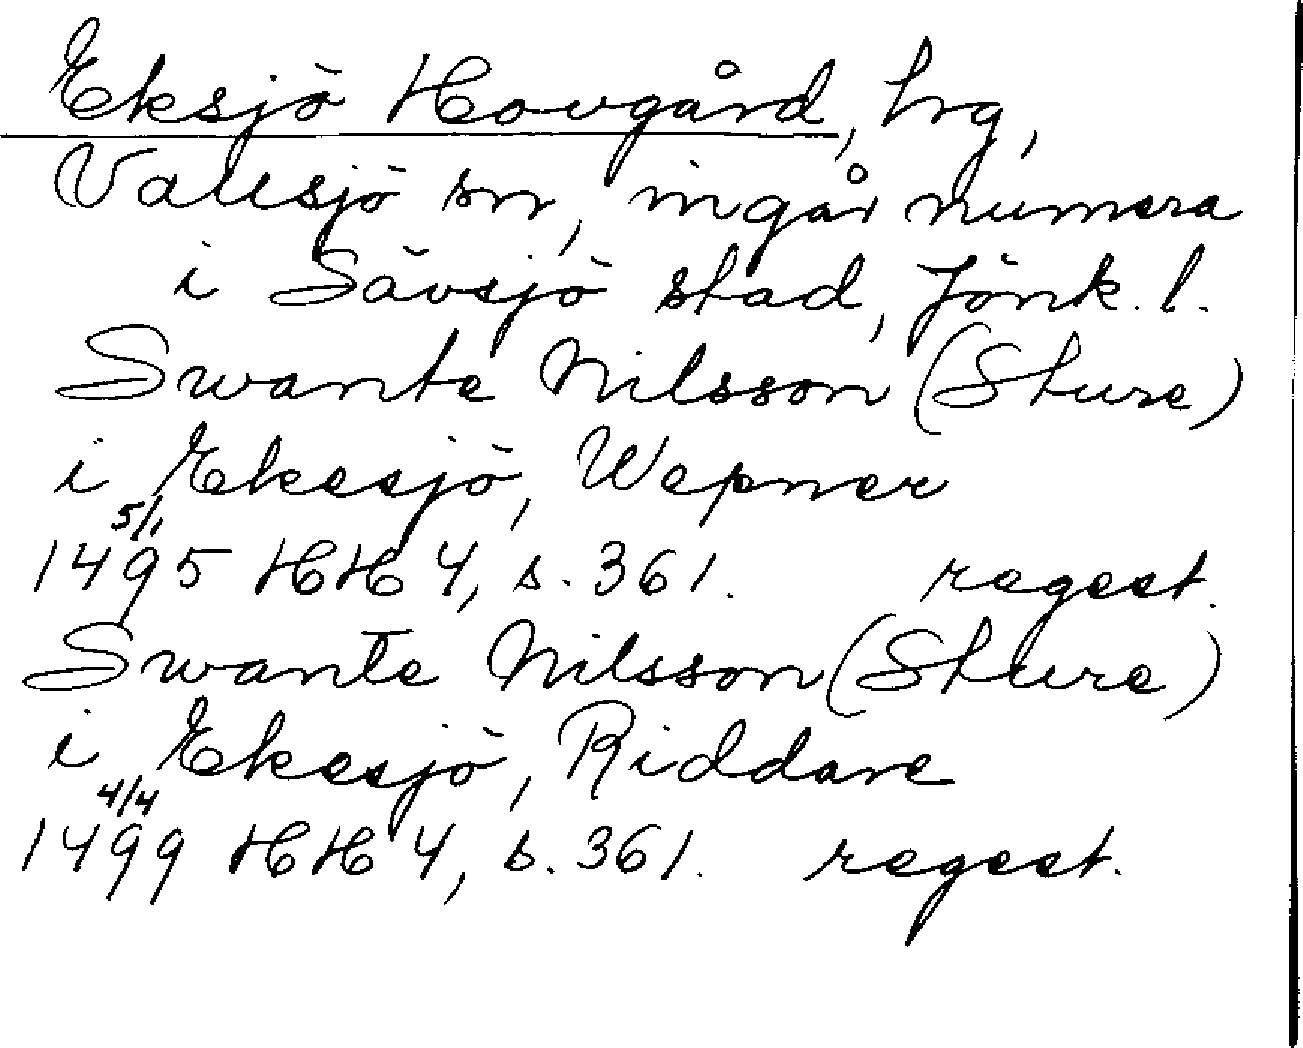 Eksjö Hovgård, hrg,
Vallsjö sn, ingår numera
i Sävsjö stad, Jönk. l.
Swante Nilsson (Sture)
i Ekesjö, Wepner
5/1
1495 HH 4, s. 361. regest.
Swante Nilsson (Sture)
i Ekesjö, Riddare
4/4
1499 HH 4, s. 361. regest.